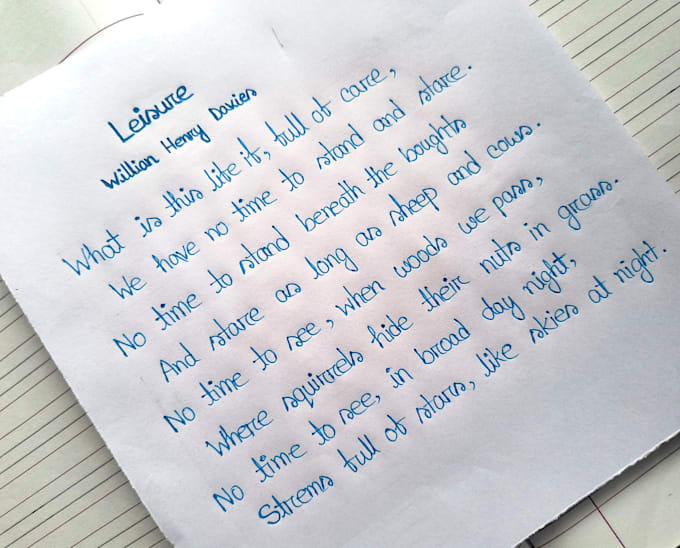 Leisure
Willian Henry Davies
What is this life if, full of care,
We have no time to stand and stare.
No time to stand beneath the boughts
And stare as long as sheep and cows.
No time to see, when woods we pass,
Where squirrels hide their nuts in grass.
No time to see, in broad day night,
Strems full of stars, like skies at night.